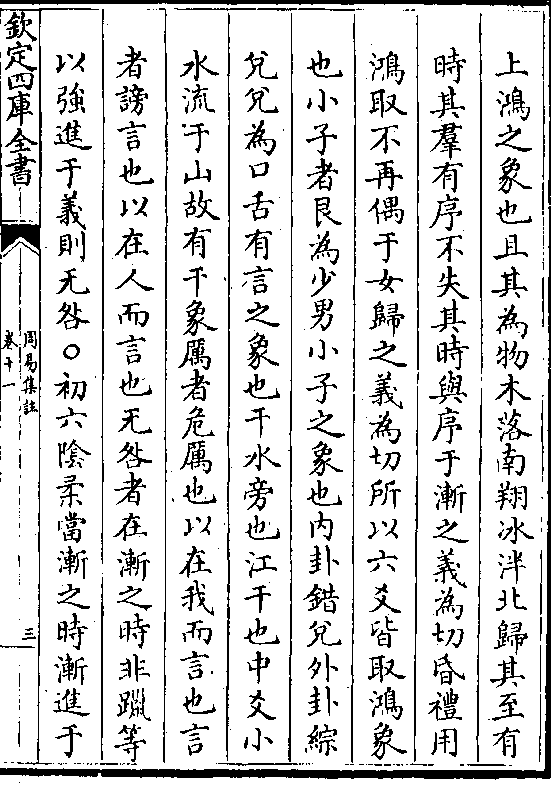 上鴻之象也且其為物木落南翔冰泮北歸其至有
時其羣有序不失其時與序于漸之義為切昏禮用
鴻取不再偶于女歸之義為切所以六爻皆取鴻象
也小子者艮為少男小子之象也内卦錯兌外卦綜
兌兌為口舌有言之象也干水旁也江干也中爻小
水流于山故有干象厲者危厲也以在我而言也言
者謗言也以在人而言也无咎者在漸之時非躐等
以強進于義則无咎○初六陰柔當漸之時漸進于
欽定四庫全書
周易集註
卷十一
三